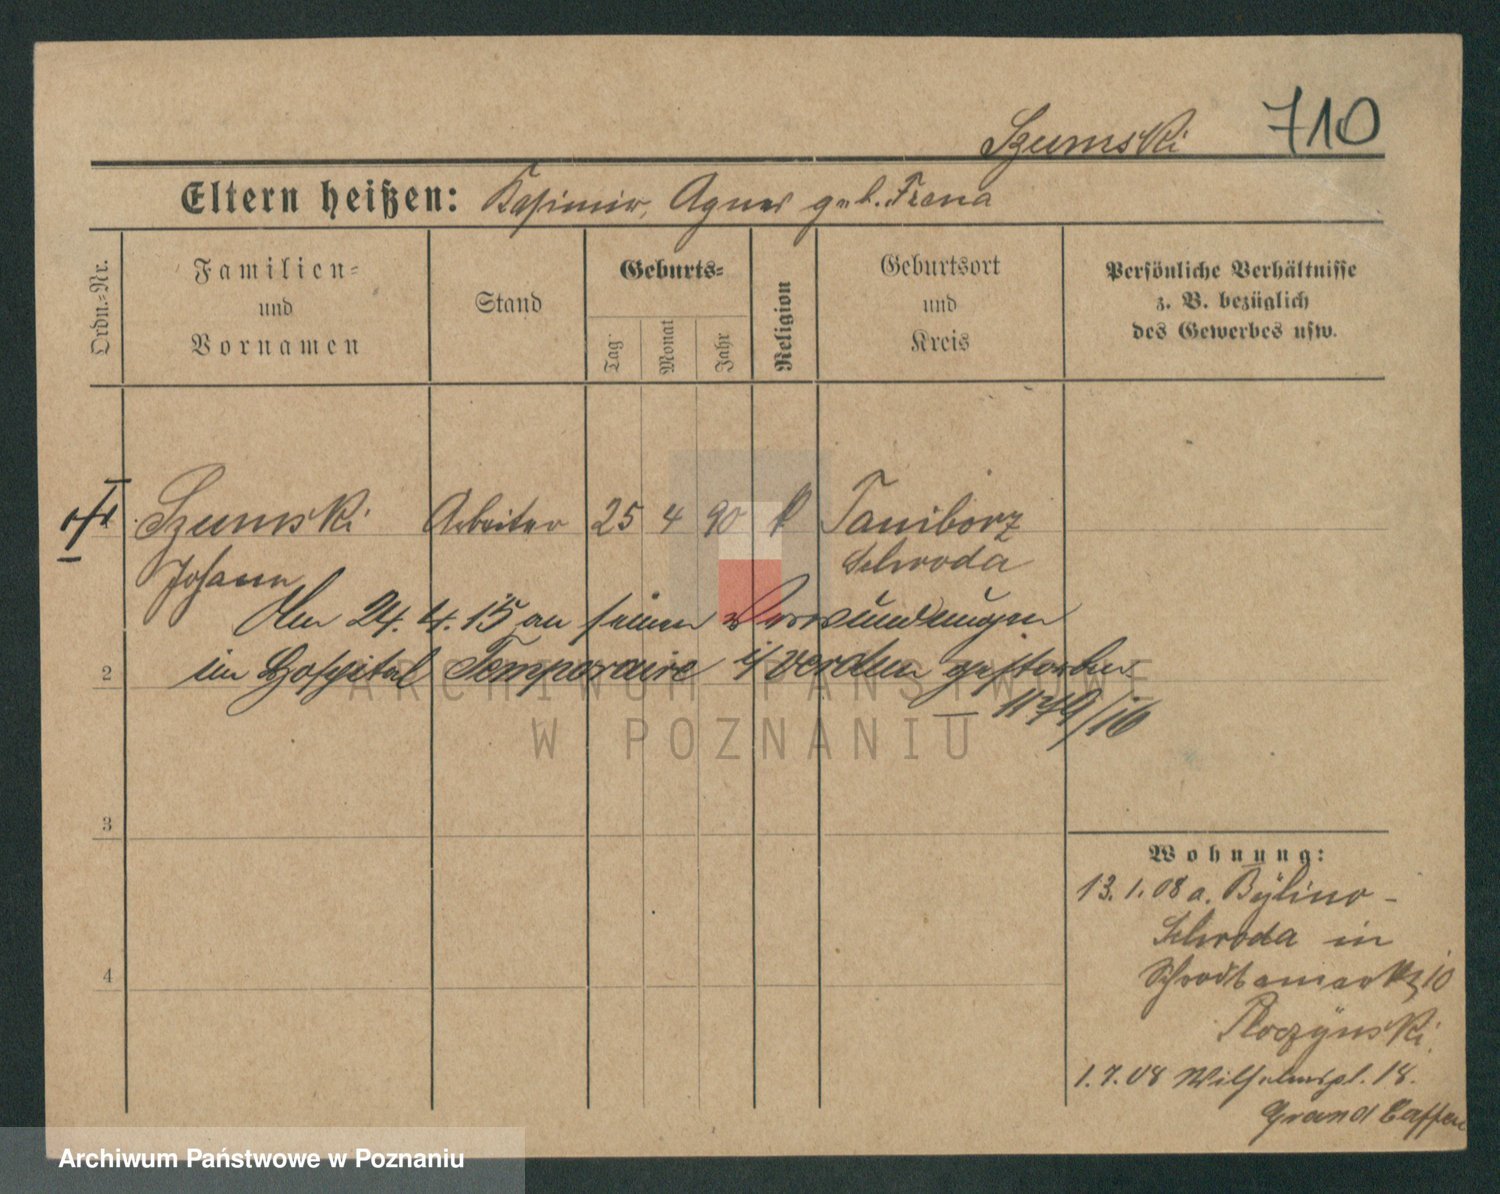 710
Szumski
Eltern heißen: Kasimir, Agnes geb. Frena
Ordn.-Nr.
Familien-
und
Vornamen
Stand
Geburts-
Tag
Monat
Jahr
Religion
Geburtsort
und
Kreis
Persönliche Verhältnisse
z. B. bezüglich
des Gewerbes usw.
Szumski Arbeiter 25 4 90 k Taniborz
Johann Schroda
Am 24. 4. 15 an seinen Verwundungen
2 im Hospital Temporaire i/ Verden gestorben.
3
4
Wohnung:
13. 1. 08 a. Bylino-
Schroda in
10
1. 7. 08 Wilhelmspl. 18.
Grand Caffee
ARCHIWUM PAŃSTWOWE
W POZNANIU
Archiwum Państwowe w Poznaniu